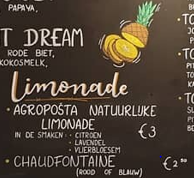 PAPAYA,
T DREAM
RODE BIET,
KOKOSMELK,
Limonade
• AGROPOSTA NATUURLIJKE
LIMONADE €3
IN DE SMAKEN • CITROEN
• LAVENDEL
• VLIERBLOESEM
• CHAUDFONTAINE €2
(ROOD OF BLAUW)